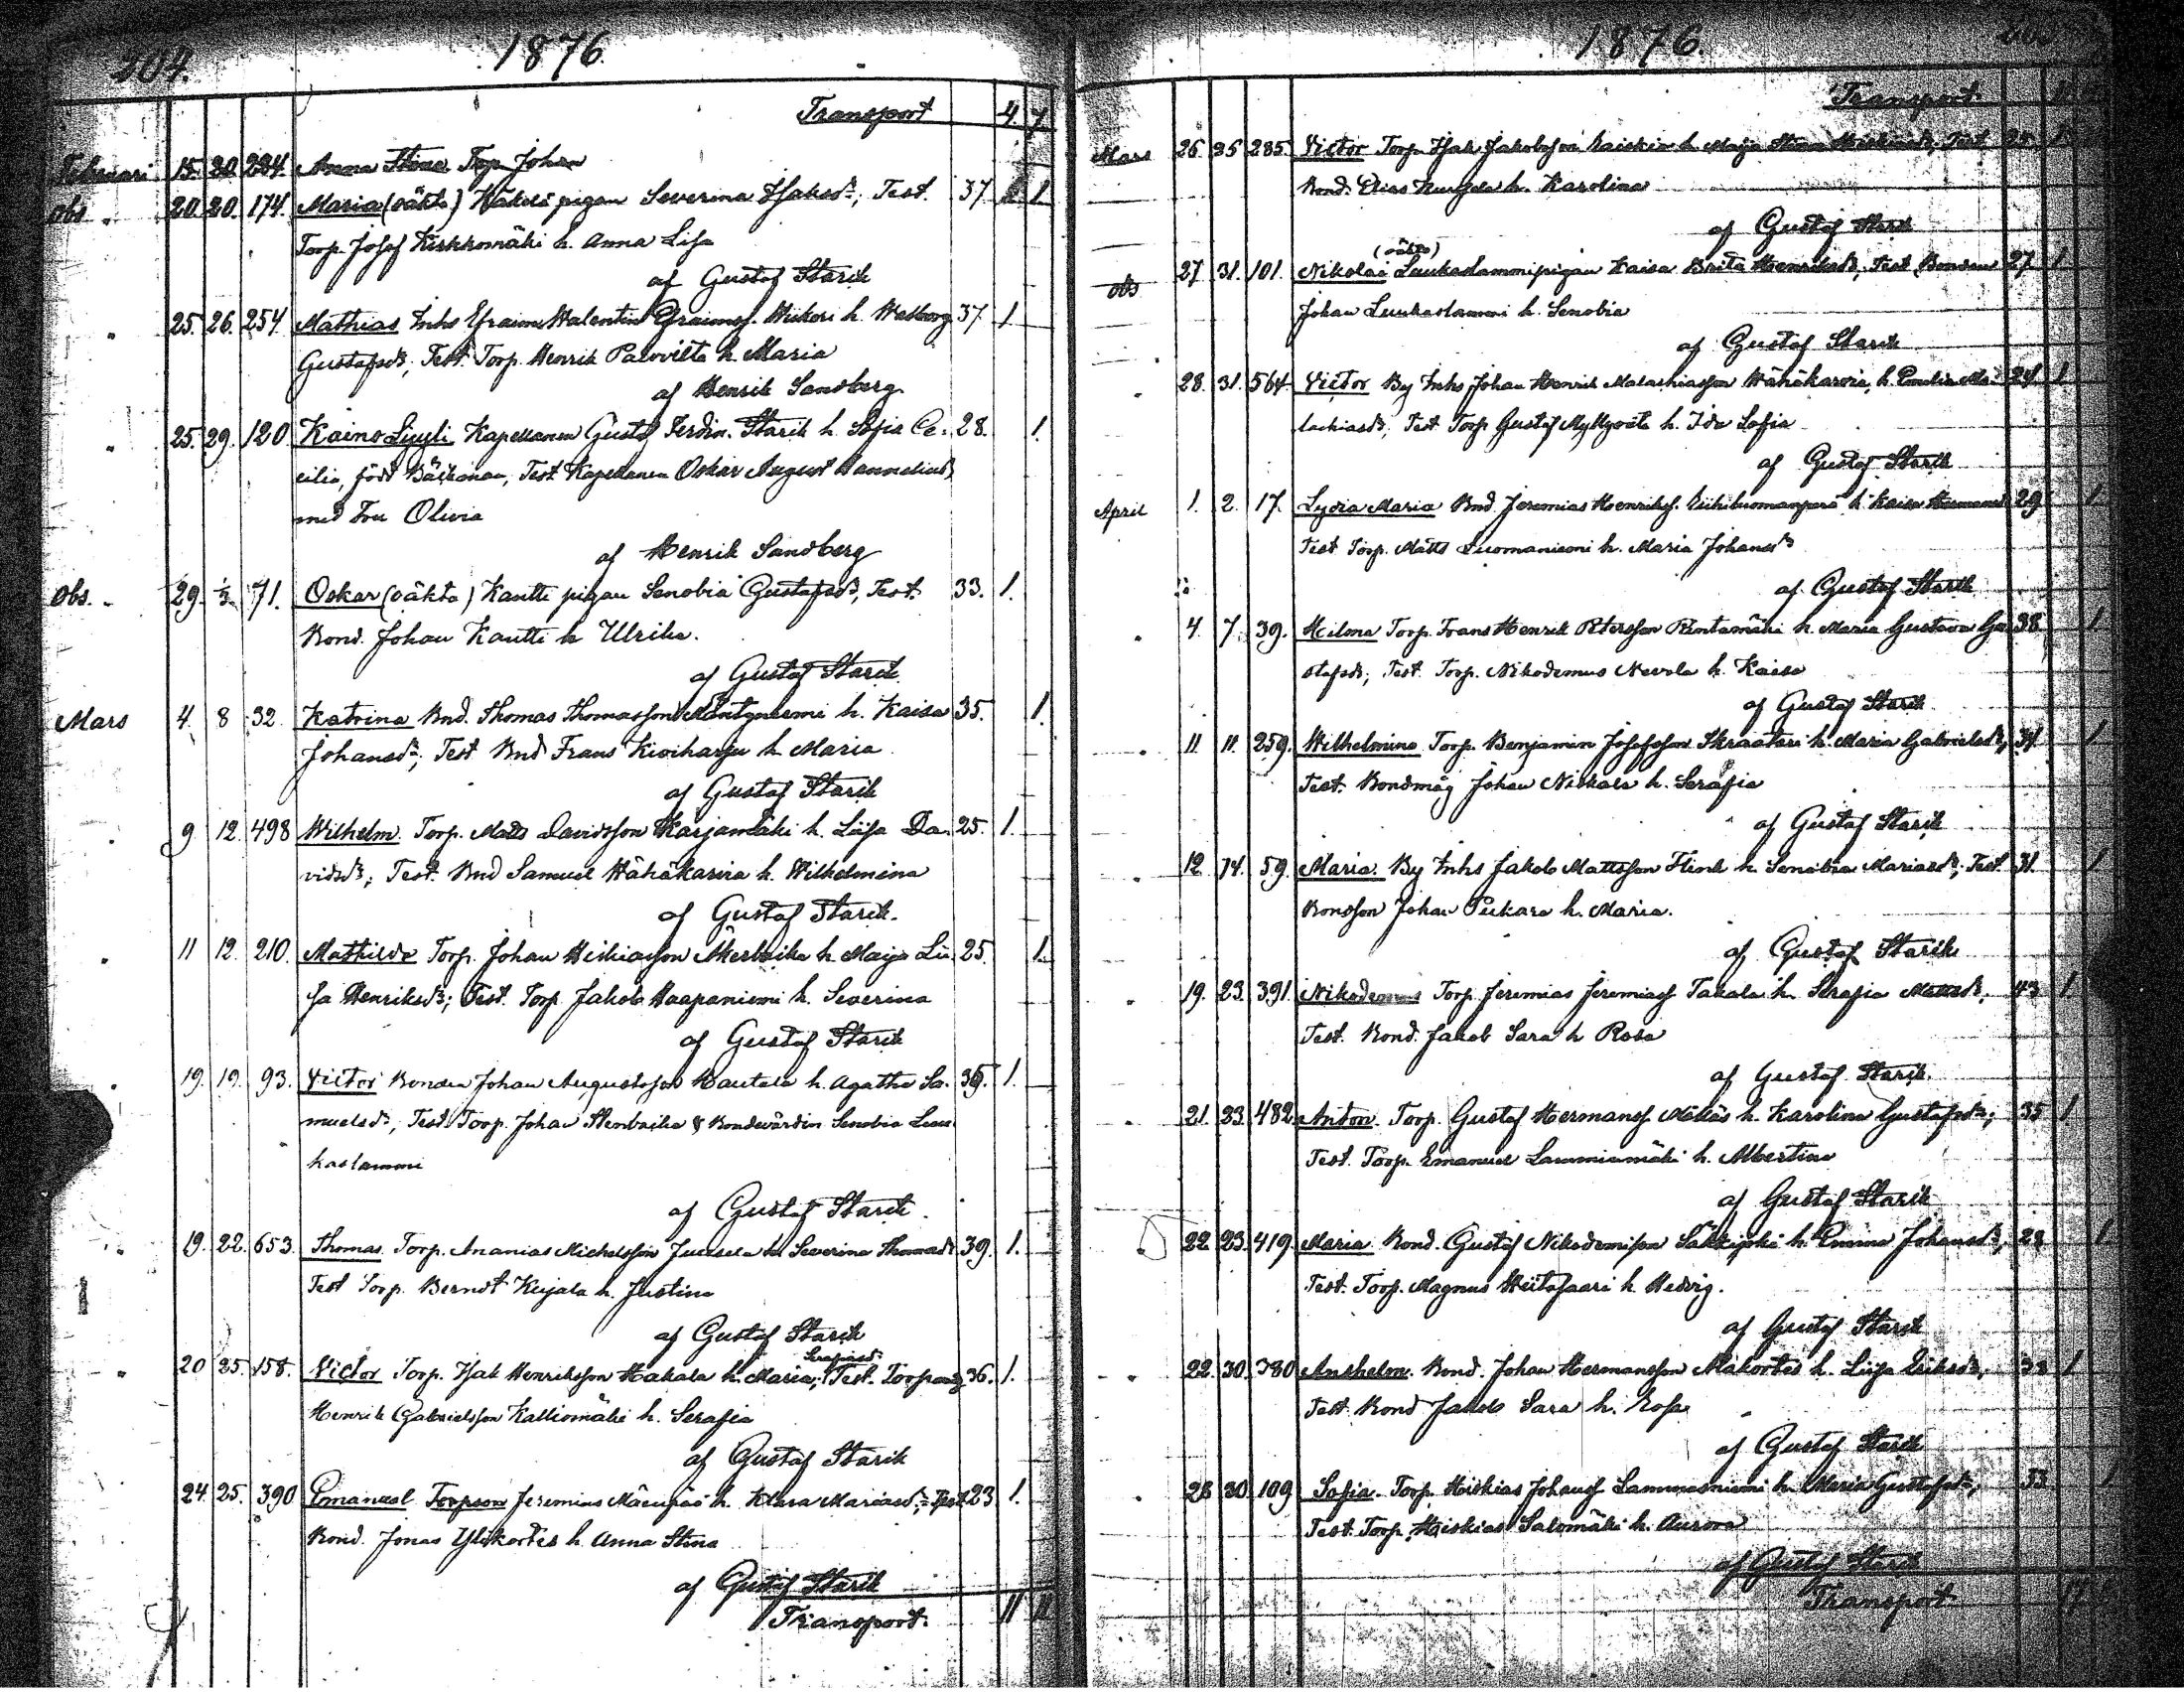 204. 1876.
Transport 4. 7
Februari 15. 20. 284. Anna Stina Torp. Johan
Obs „ 20. 20. 174. Maria (oäkta) pigan Severina Isaksd:r; Test. 37 1
Torp. Josef Kirkkomäki h. Anna Lisa
af Gustaf Starik
„ 25. 26. 254. Mathias Inhs Efraim Walentin Efraimsf. h. Walborg 37 1
Gustafsd:r; Test. Torp. Henrik h. Maria
af Henrik Sandberg
„ 25. 29. 120 Kaino Lyyli Kapellanen Gustaf Ferdin. Starik h. Sofia Ce- 28. 1.
cilia, född Bäckman, Test Kapellanen Oskar August
med Fru Olivia
af Henrik Sandberg
Obs. „ 29. 71. Oskar (oäkta) Kantti pigan Senobia Gustafsd:r, Test. 33. 1.
Bond. Johan Kantti h Ulrika.
af Gustaf Starik
Mars 4. 8 32. Katrina Bnd. Thomas Thomasson Mäntyniemi h. Kaisa 35. 1.
Johansd:r; Test Bnd Frans Kiviharju h. Maria
af Gustaf Starik
„ 9 12. 498 Wilhelm. Torp. Matts Davidsson Karjamäki h. Liisa Da- 25. 1.
vidsd:r; Test. Bnd Samuel Wähäkarvia h. Wilhelmina
af Gustaf Starik.
„ 11 12. 210. Mathilda Torp. Johan Hiskiasson h. Maija Lii- 25. 1.
sa Henriksd:r; Test. Torp. Jakob Haapaniemi h. Severina
af Gustaf Starik
„ 19. 19. 93. Victor Bonden Johan Augustsson Hautala h. Agatha Sa- 35. 1.
muelsd:r, Test. Torp. Johan Stenbacka & Bondevärdin Senobia Luu-
kaslammi
af Gustaf Starik.
„ 19. 22. 653. Thomas. Torp. Ananias Michelsson h. Severina Thomasd:r 39. 1.
Test Torp. Berndt Keijala h. Justina
af Gustaf Starik
„ 20 25. 158. Victor Torp. Isak Henriksson Hakala h. Maria; Test. 36. 1.
Henrik Gabrielsson Kalliomäki h. Serafia
af Gustaf Starik
24. 25. 390 Emanuel Torpson Jeremias Mäenpää h. Klara Mariasd:r; Test. 23 1.
Bond. Jonas Ylikortes h. Anna Stina
af Gustaf Starik
Transport. 11 11
1876.
Transport.
Mars 26 25 285. Victor Torp. Isak Jakobsson h. Maija Stina Hiskiasd:r; Test 1
Bond. Elias h. Karolina
af Gustaf Starik
obs 27 31. 101. Nikolai (oäkta) Luukaslammi pigan Kaisa Brita Henriksd:r, Test. Bonden 27. 1.
Johan Luukaslammi h. Senobia
af Gustaf Starik
„ 28. 31. 564. Victor By Inhs Johan Henrik Malachiasson Wähäkarvia, h. Emilia Ma- 24. 1
lachiasd:r, Test Torp Gustaf Myllyviita h. Ida Sofia
af Gustaf Starik
April 1. 2. 17. Lydia Maria Bnd. Jeremias Henriksf. h. Kaisa 29. 1.
Test Torp. Matts Luomaniemi h. Maria Johansd:r
af Gustaf Starik
„ 4. 7. 39. Hilma Torp. Frans Henrik Petersson Rintamäki h. Maria Gustava Gu- 38. 1
stafsd:r; Test. Torp. Nikodemus Nevala h. Kaisa
af Gustaf Starik
„ 11 11. 259. Wilhelmina Torp. Benjamin Josefsson Skraatari h. Maria Gabrielsd:r, 34. 1
Test. Bondmåg Johan Niskala h. Serafia
af Gustaf Starik
„ 12. 14. 59. Maria. By Inhs Jakob Mattsson Flink h. Senobia Mariasd:r; Test. 31. 1
Bondson Johan Piikara h. Maria.
af Gustaf Starik
„ 19. 23. 391. Nikodemus Torp. Jeremias Jeremiasf Takala h. Serafia Mattsd:r. 43 1.
Test. Bond. Jakob Sara h Rosa
af Gustaf Starik.
„ 21. 23. 482. Anton. Torp. Gustaf Hermansf h. Karolina Gustafsd:r; 35 1
Test. Torp. Emanuel Lamminmäki h. Albertina
af Gustaf Starik
22 23. 419. Maria. Bond. Gustaf Nikodemisson h. Emma Johansd:r, 28 1
Test. Torp. Magnus Hietasaari h. Hedvig.
af Gustaf Starik
„ 22. 30. 380 Anshelm. Bond. Johan Hermansson h. Liisa Eriksd:r, 38 1
Test. Bond Jakob Sara h. Rosa
af Gustaf Starik
28 30 109 Sofia. Torp. Hiskias Johansf Lammasniemi h. Maria Gustafsd:r, 33 1
Test. Torp. Hiskias Salomäki h. Aurora
af Gustaf Starik
Transport